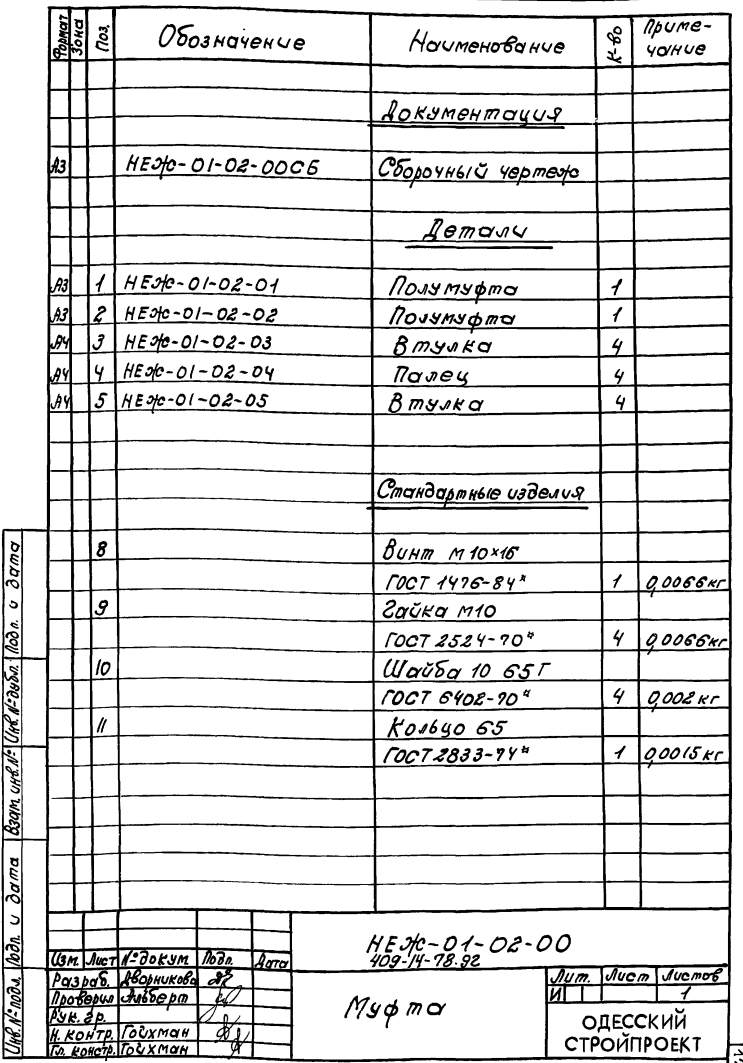 Формат Зона Поз. Обозначение Наименование К-во Примечание
Документация
А3 НЕЖ-01-02-00СБ Сборочный чертеж
Детали
А3 1 НЕЖ-01-02-01 Полумуфта 1
А3 2 НЕЖ-01-02-02 Полумуфта 1
А4 3 НЕЖ-01-02-03 Втулка 4
А4 4 НЕЖ-01-02-04 Палец 4
А4 5 НЕЖ-01-02-05 Втулка 4
Стандартные изделия
8 Винт М10×16
ГОСТ 1476-84* 1 0,0066кг
9 Гайка М10
ГОСТ 2524-70* 4 0,0066кг
10 Шайба 10 65Г
ГОСТ 6402-70* 4 0,002кг
11 Кольцо 65
ГОСТ 2833-74* 1 0,0015кг
Инв.№подл. Подп. и дата Взам.инв.№ Инв.№дубл. Подп. и дата
НЕЖ-01-02-00
409-14-78.92
Изм. Лист №докум. Подп. Дата
Разраб. Дворникова
Проверил Альберт
Рук.гр.
Н.контр. Гойхман
Гл.констр. Гойхман
Муфта
Лит. Лист Листов
И 1
ОДЕССКИЙ
СТРОЙПРОЕКТ